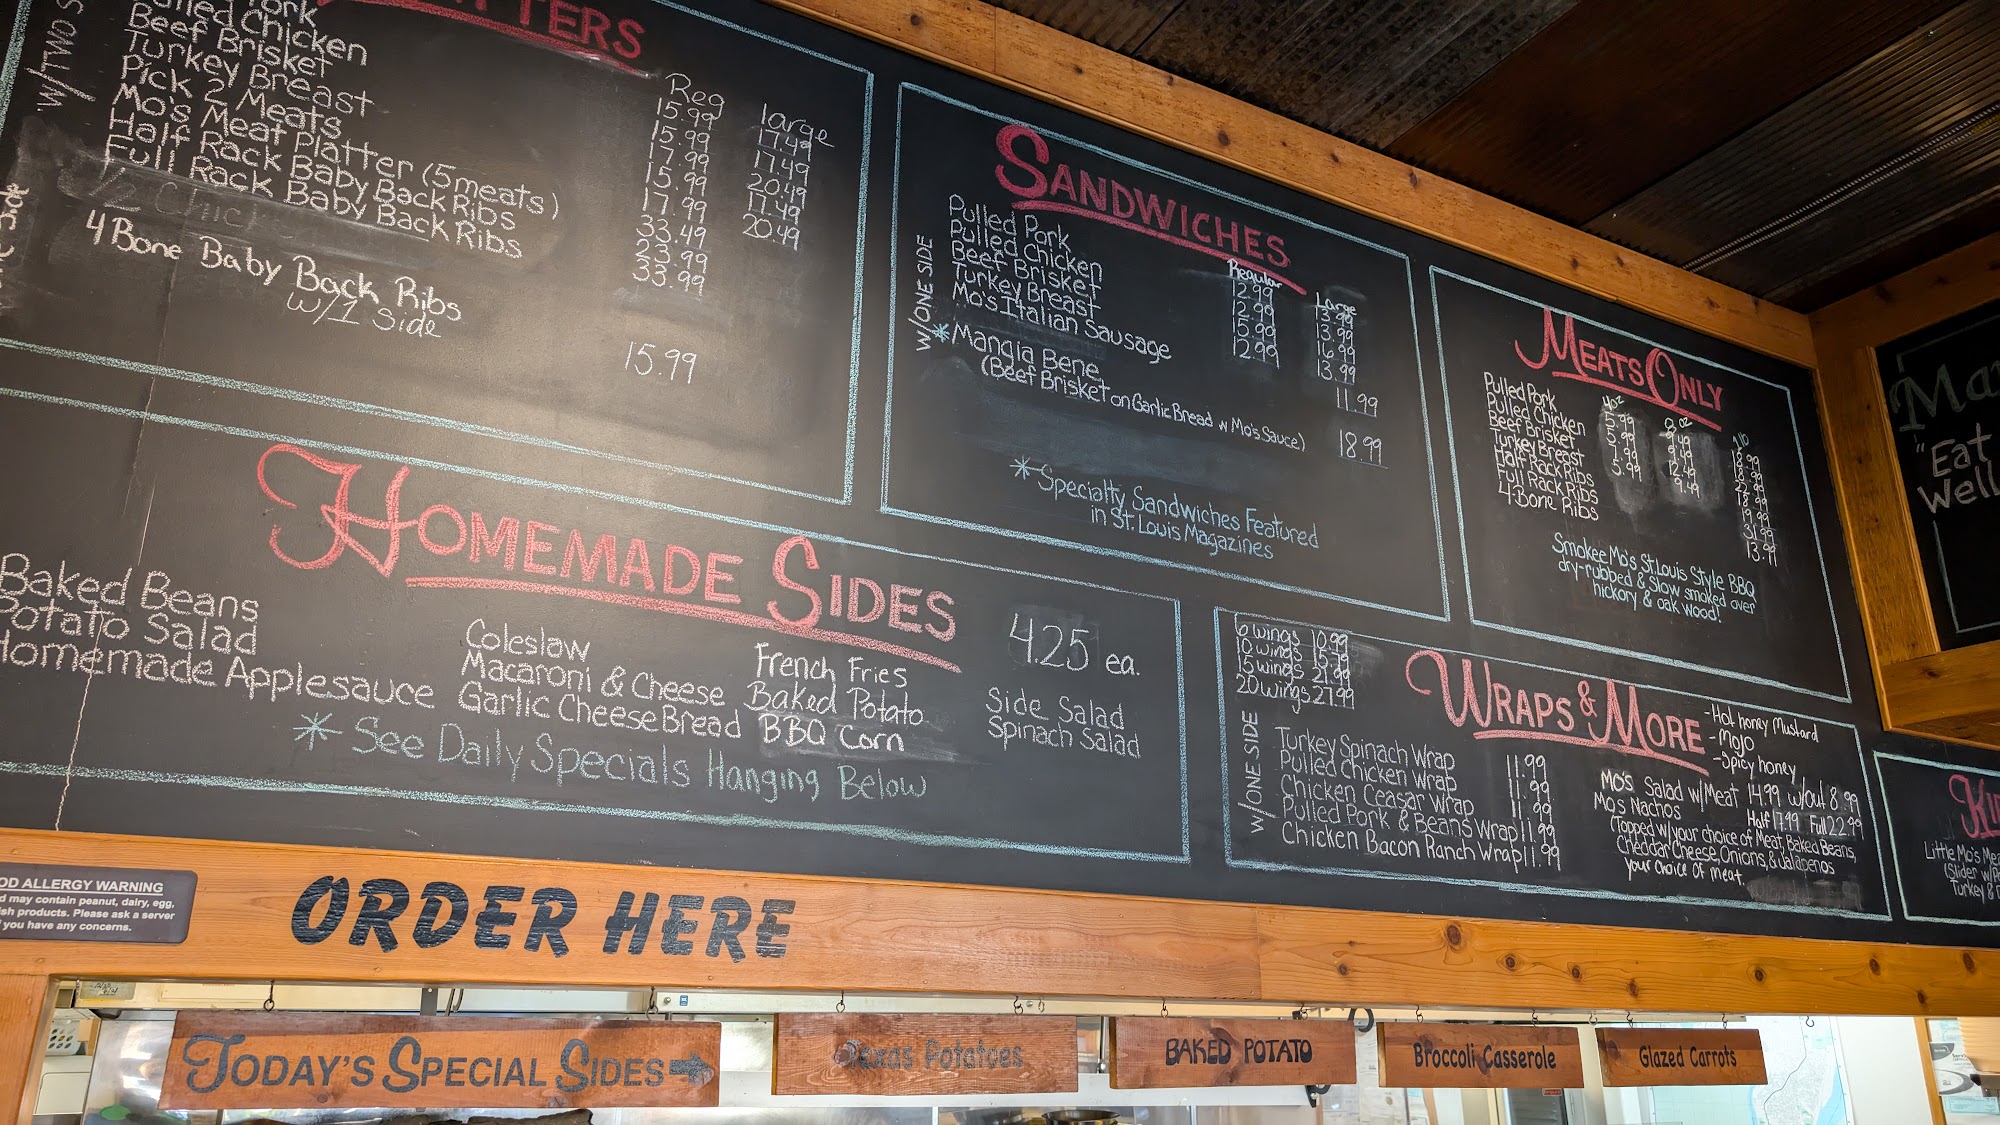 TTERS
w/TWO S
Pulled Pork
Pulled Chicken
Beef Brisket
Turkey Breast
Pick 2 Meats
Mo's Meat Platter (5 meats)
Half Rack Baby Back Ribs
Full Rack Baby Back Ribs
1/2 Chick
4 Bone Baby Back Ribs
w/1 side
Reg
15.99
15.99
17.99
15.99
17.99
33.49
23.99
33.99
15.99
large
17.49
17.49
20.49
17.49
20.49
SANDWICHES
w/ONE SIDE
Pulled Pork
Pulled Chicken
Beef Brisket
Turkey Breast
Mo's Italian Sausage
* Mangia Bene
(Beef Brisket on Garlic Bread w Mo's Sauce)
Regular
12.99
12.99
15.99
12.99
Large
13.99
13.99
16.99
13.99
11.99
18.99
* Specialty Sandwiches Featured
in St. Louis Magazines
MEATS ONLY
Pulled Pork
Pulled Chicken
Beef Brisket
Turkey Breast
Half Rack Ribs
Full Rack Ribs
4 Bone Ribs
4oz
5.99
5.99
7.99
5.99
8 oz
9.49
9.49
12.49
9.49
31.99
13.99
Smokee Mo's St. Louis Style BBQ
dry-rubbed & slow smoked over
hickory & oak wood!
HOMEMADE SIDES
4.25 ea.
Baked Beans
Potato Salad
Homemade Applesauce
Coleslaw
Macaroni & Cheese
Garlic Cheese Bread
French Fries
Baked Potato
BBQ Corn
Side Salad
Spinach Salad
* See Daily Specials Hanging Below
6 wings 10.99
10 wings 15.99
15 wings 21.99
20 wings 27.99
WRAPS & MORE
- Hot honey Mustard
- Mojo
- Spicy honey
w/ONE SIDE
Turkey Spinach Wrap 11.99
Pulled Chicken Wrap 11.99
Chicken Ceasar Wrap 11.99
Pulled Pork & Beans Wrap 11.99
Chicken Bacon Ranch Wrap 11.99
MO'S Salad w/Meat 14.99 w/out 8.99
Mo's Nachos Half 17.49 Full 22.99
(Topped w/your choice of Meat, Baked Beans,
Cheddar Cheese, Onions, & Jalapenos
your choice of meat.
Ma
"Eat
Well
KI
Little Mo's Mea
(Slider w/P
Turkey &
OD ALLERGY WARNING
d may contain peanut, dairy, egg,
ish products. Please ask a server
you have any concerns.
ORDER HERE
TODAY'S SPECIAL SIDES
Texas Potatoes
BAKED POTATO
Broccoli Casserole
Glazed Carrots